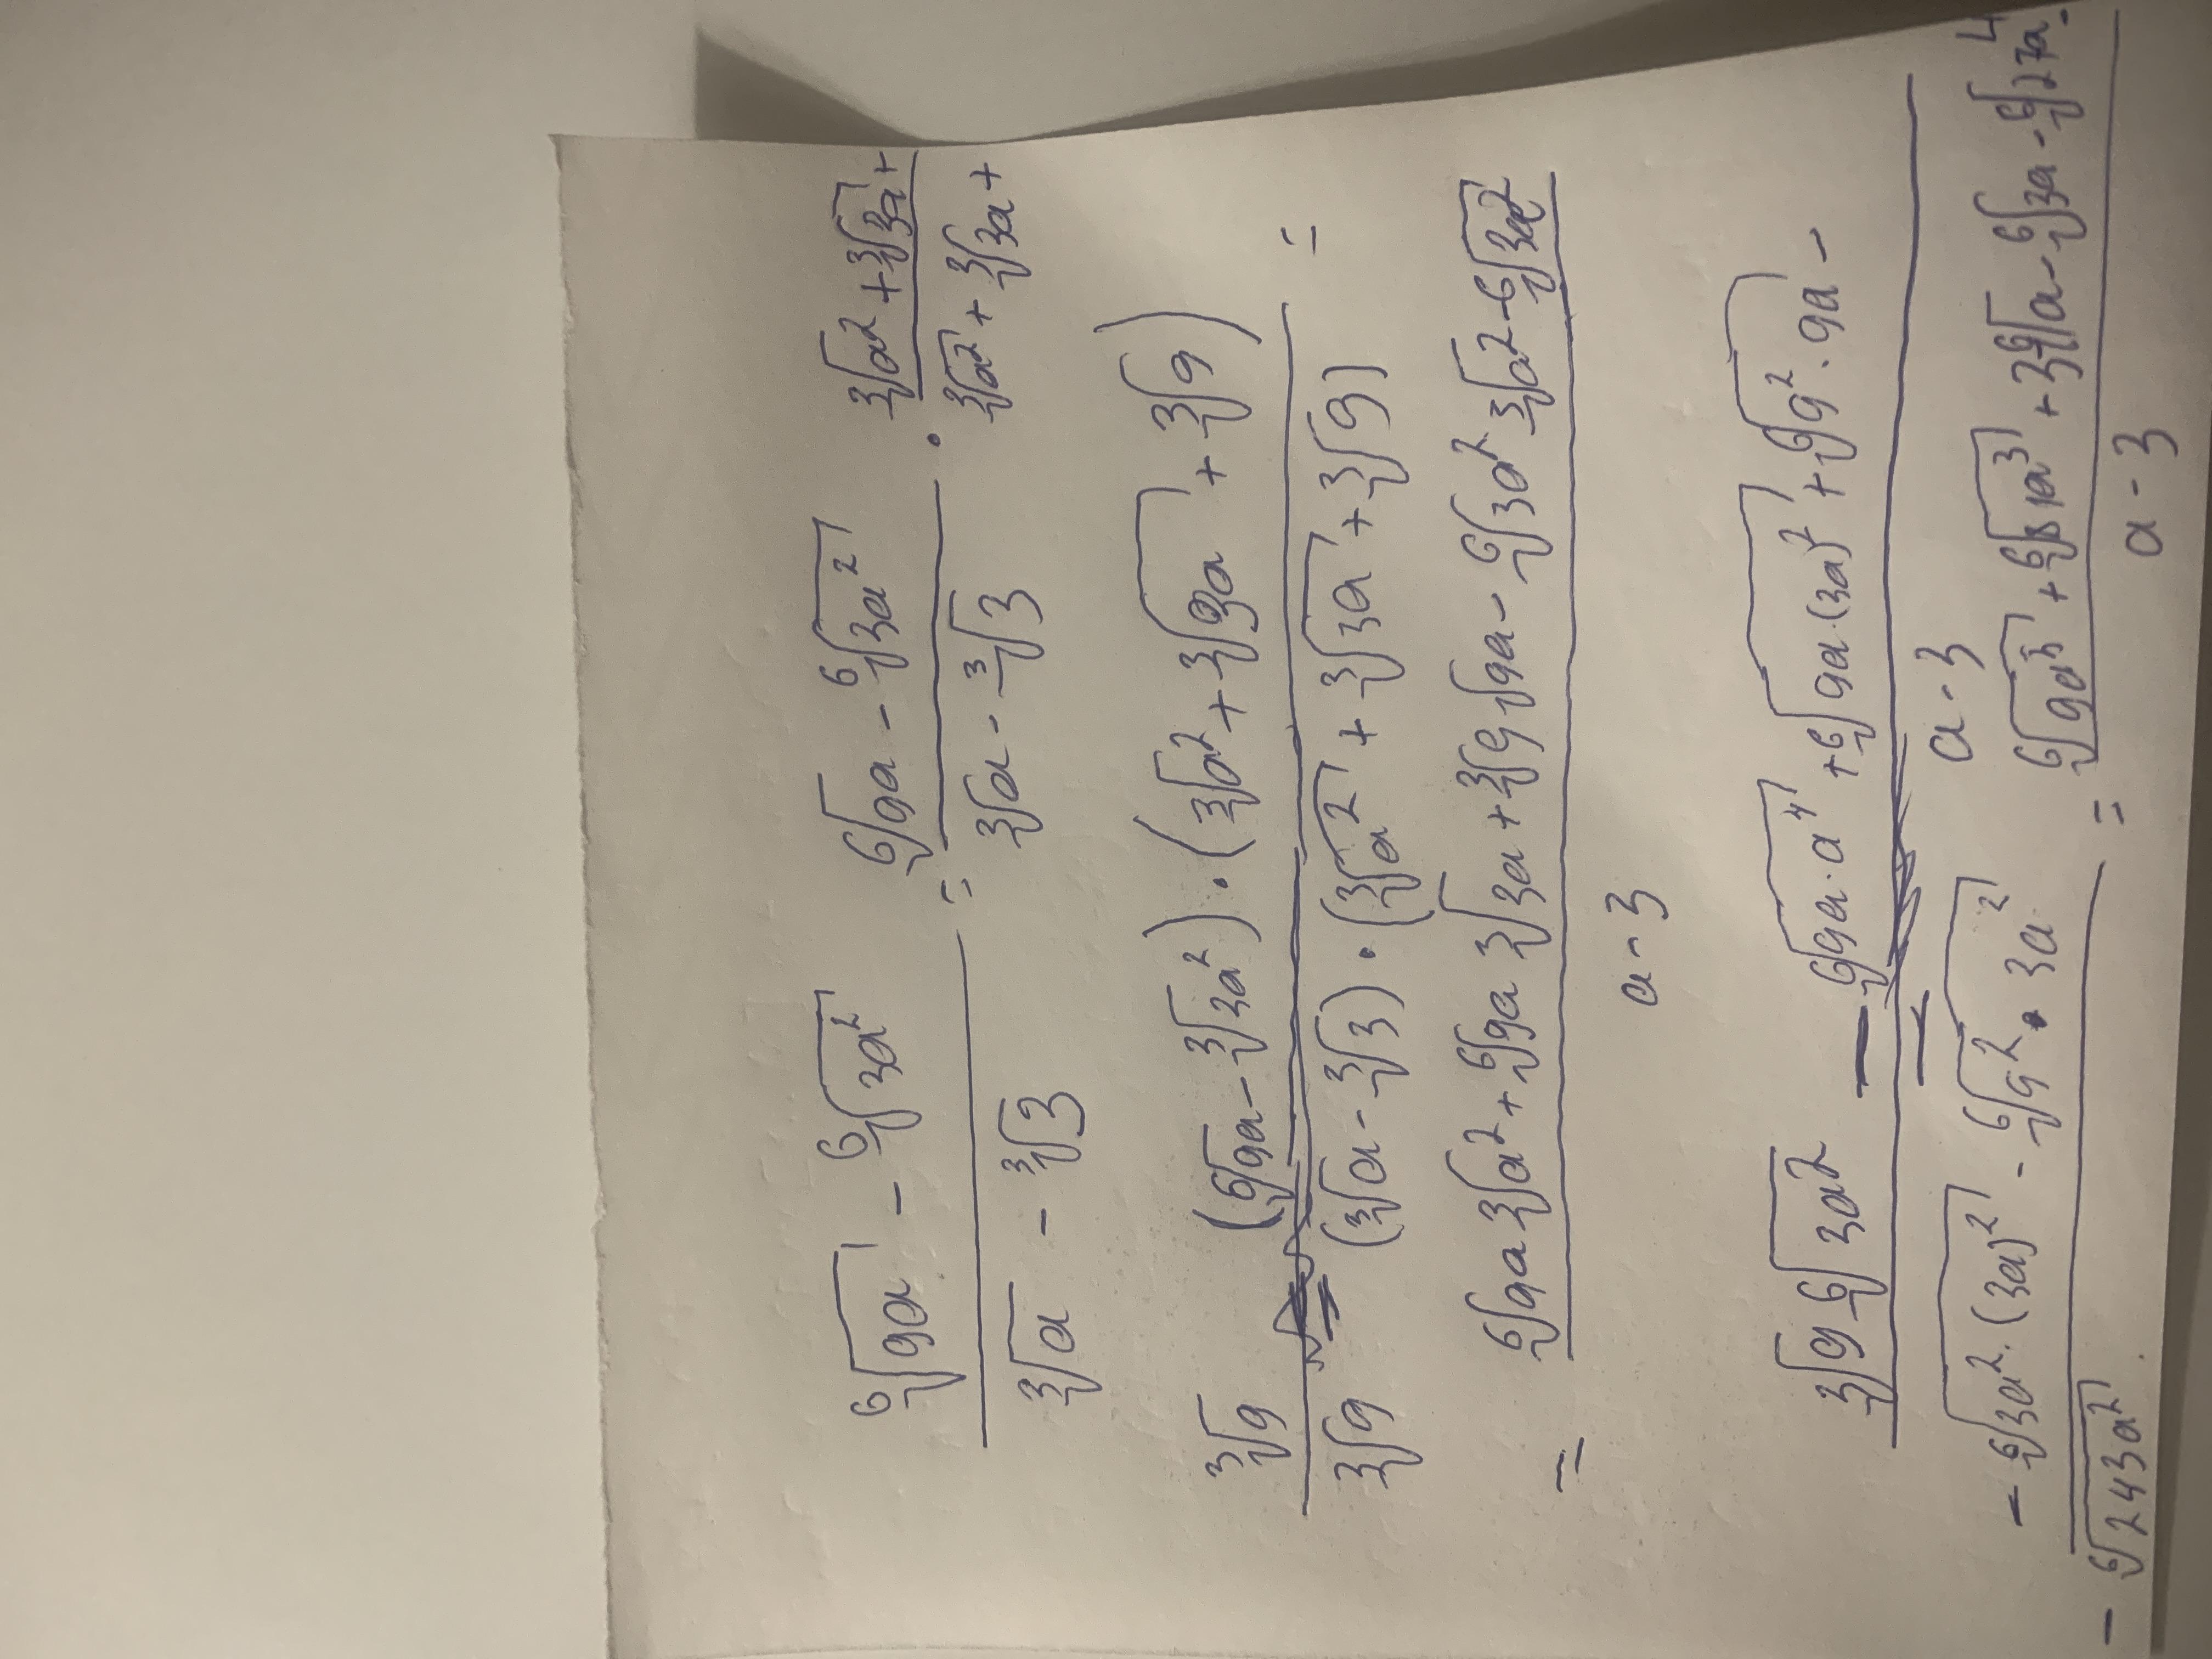 ⁶√9a - ⁶√3a² = ⁶√9a - ⁶√3a² · ³√a² + ³√3a +
³√a - ³√3 ³√a - ³√3 ³√a² + ³√3a +
³√9 (⁶√9a - ³√3a²) · (³√a² + ³√3a + ³√9) =
³√9 (³√a - ³√3) · (³√a² + ³√3a + ³√9)
= ⁶√9a ³√a² + ⁶√9a ³√3a + ³√9 ⁶√9a - ⁶√3a² ³√a² - ⁶√3a²
a - 3
³√9 ⁶√3a² - ⁶√9a · a⁴ + ⁶√9a · (3a)² + ⁶√9² · 9a -
a - 3
- ⁶√3a² · (3a)² - ⁶√9² · 3a² = ⁶√9a⁵ + ⁶√81a³ + 3⁶√a - ⁶√3a - ⁶√27a⁴ -
- ⁶√243a² a - 3